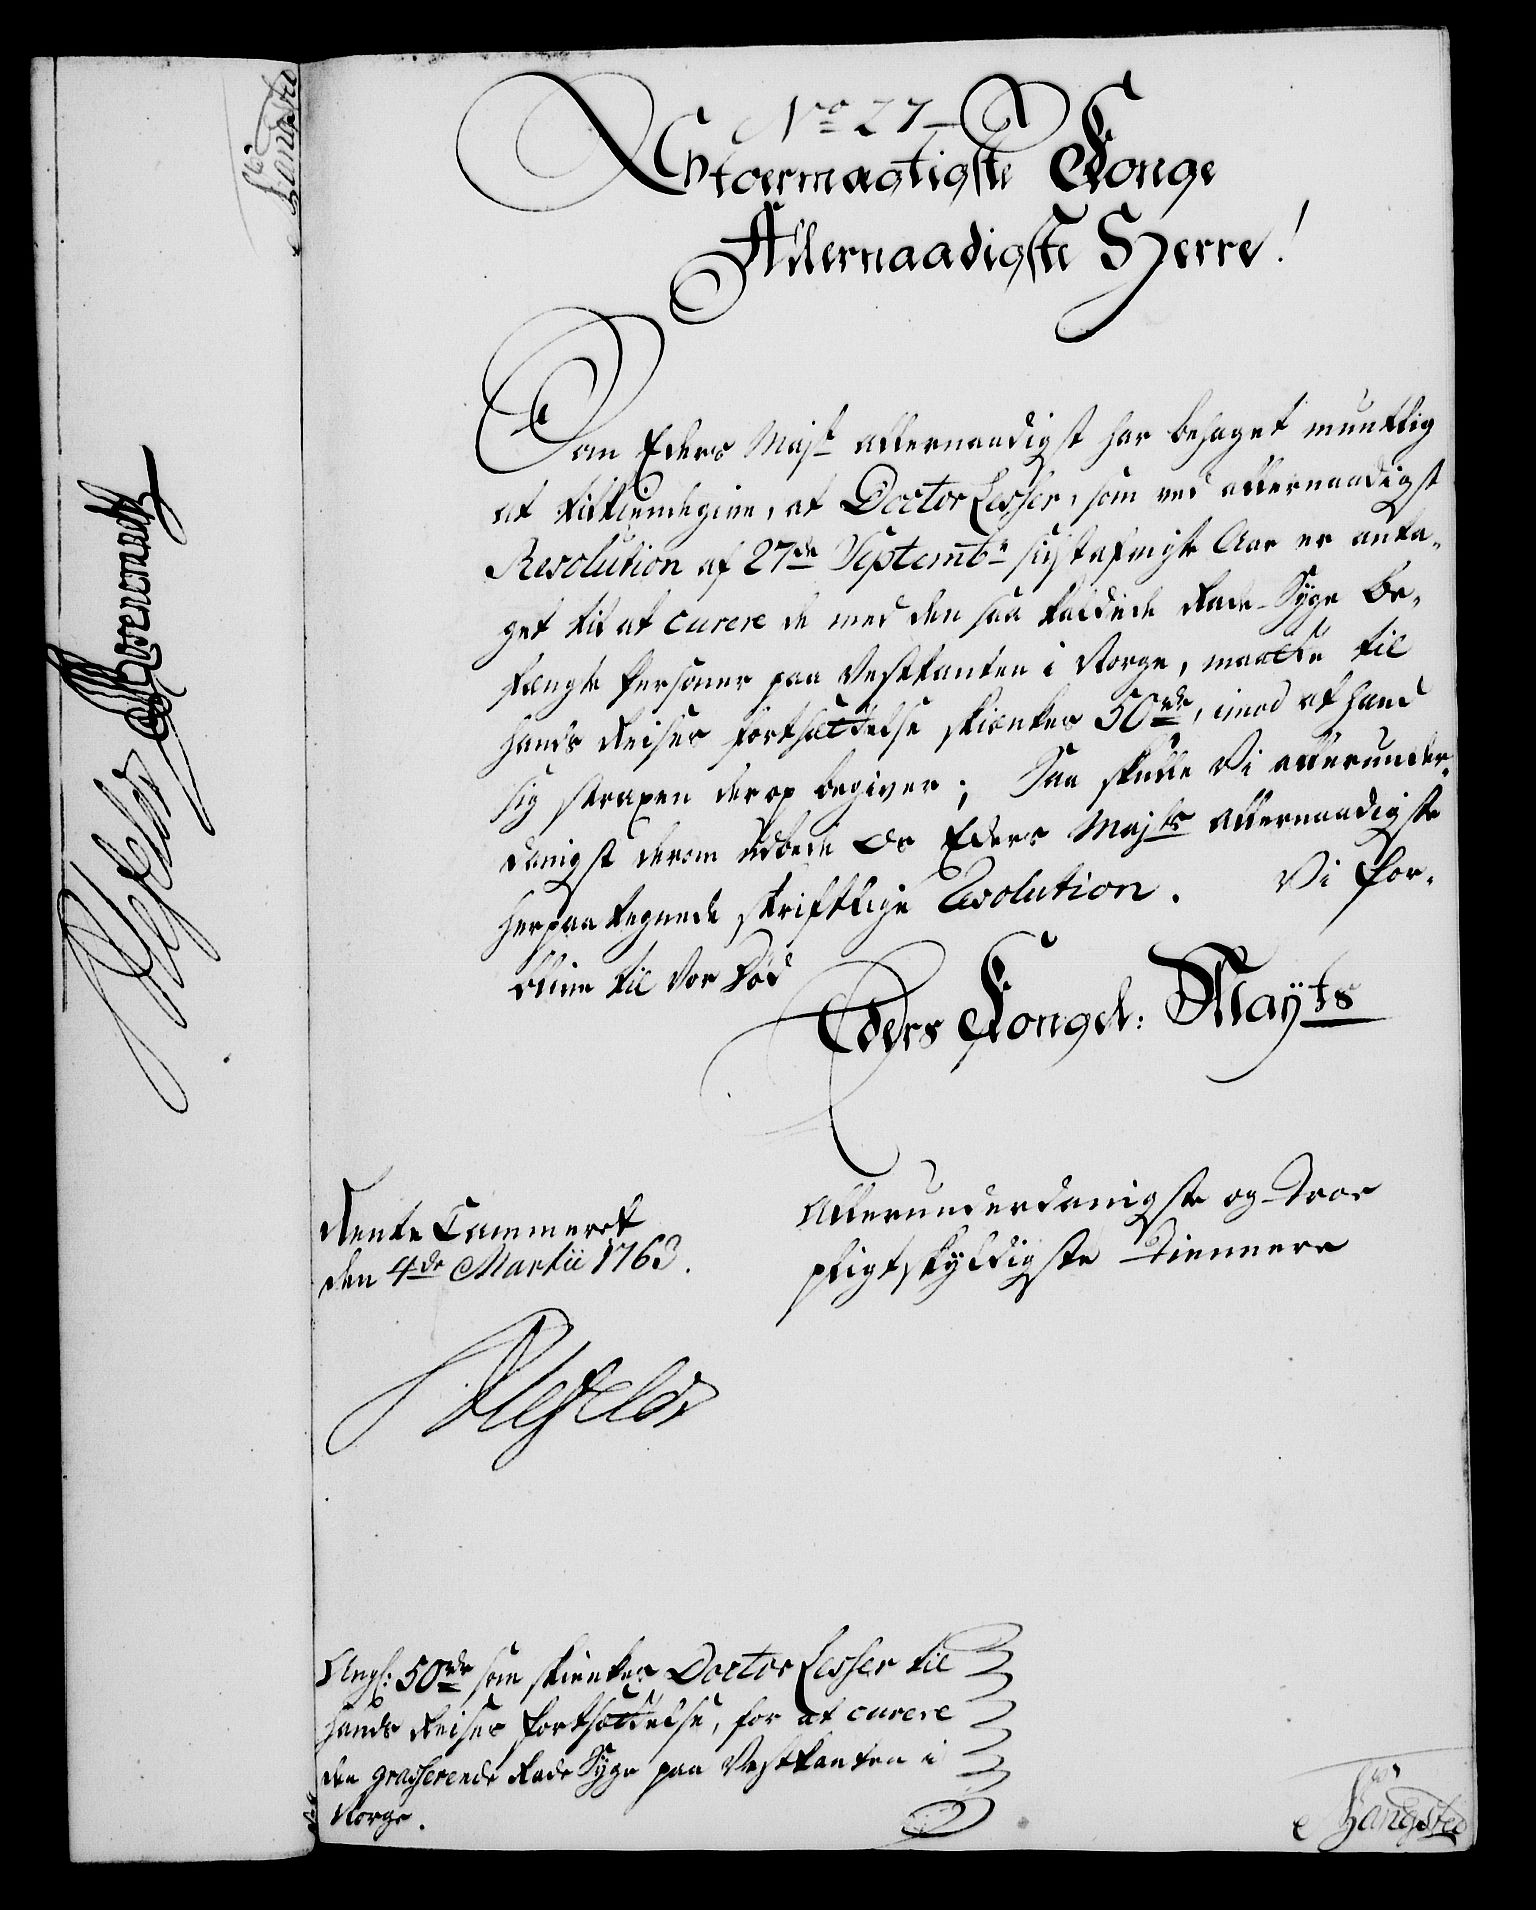 No 27
Stormægtigste Konge
Allernaadigste Herre!
Som Eders Majt allernaadigst har behaget muntlig
at tilkiendegive, at Doctor Lesser, som ved allernaadigst
Resolution af 27de Septembr sistafvigte Aar er anta-
get til at curere de med den saa kaldede Rade-Syge be-
fængte Personer paa Vestkanten i Norge, maatte til
hands Reises fortsættelse skienkes 50 rdr, imod at hand
sig straxen derop begiver; Saa skulle Vi allerunder-
danigst derom udbede Os Eders Majts allernaadigste
herpaa tegnede skriftlige Resolution. Vi for-
blive til vor Død
Eders Kongel: Mayts
Allerunderdanigste og Troe
pligtskyldigste Tiennere
Rente Cammeret
den 4de Martii 1763.
Ahlefeldt
Ang: 50 rdr som skienkes Doctor Lesser til
hands Reises fortsættelse, for at curere
den grasserende Rade Syge paa Vestkanten i
Norge.
Bangsted